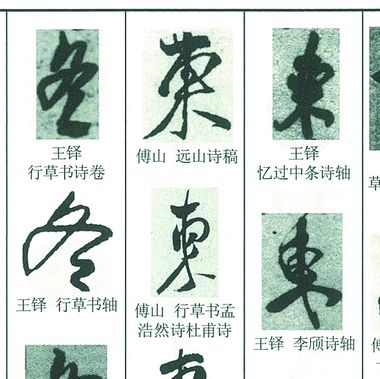 冬
王铎
行草书诗卷
冬
王铎 行草书轴
東
傅山 远山诗稿
東
傅山 行草书孟
浩然诗杜甫诗
東
王铎
忆过中条诗轴
東
王铎 李颀诗轴